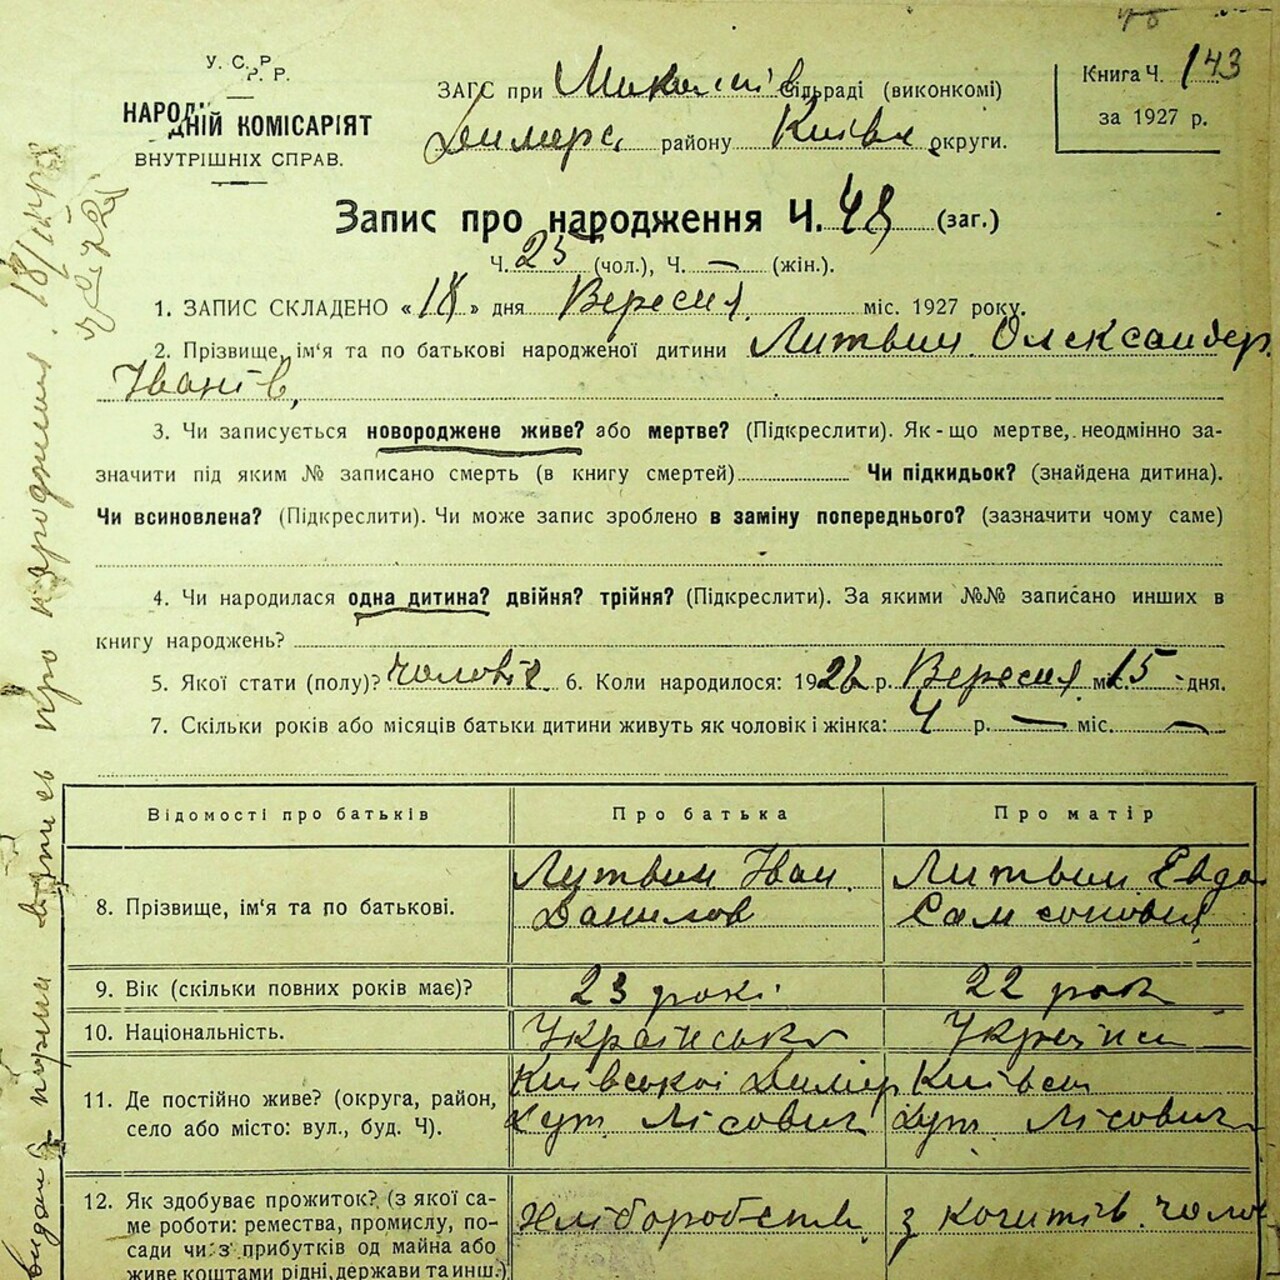 У. С. Р. Р.
НАРОДНІЙ КОМІСАРІЯТ
ВНУТРІШНІХ СПРАВ.
ЗАГС при сільраді (виконкомі)
Димерс. району Київс округи.
Книга Ч. 143
за 1927 р.
Запис про народження Ч. 48 (заг.)
Ч. 25 (чол.), Ч. — (жін.).
1. ЗАПИС СКЛАДЕНО «18» дня Вересня міс. 1927 року.
2. Прізвище, ім'я та по батькові народженої дитини Литвин Олександер
Іванів,
3. Чи записується новороджене живе? або мертве? (Підкреслити). Як-що мертве, неодмінно за-
значити під яким № записано смерть (в книгу смертей) Чи підкидьок? (знайдена дитина).
Чи всиновлена? (Підкреслити). Чи може запис зроблено в заміну попереднього? (зазначити чому саме)
4. Чи народилася одна дитина? двійня? трійня? (Підкреслити). За якими №№ записано инших в
книгу народжень?
5. Якої стати (полу)? чоловіч. 6. Коли народилося: 19 р. Вересня міс. 15 дня.
7. Скільки років або місяців батьки дитини живуть як чоловік і жінка: 4 р. — міс. —
Відомості про батьків
Про батька
Про матір
8. Прізвище, ім'я та по батькові.
Литвин Іван
Данилов
Литвин Евдо
Самсоновня
9. Вік (скільки повних років має)?
23 рокі
22 рок
10. Національність.
Українсько
Українс
11. Де постійно живе? (округа, район,
село або місто: вул., буд. Ч).
Київської Димер
хут. Лісович
Київсь
хут. Лісович
12. Як здобуває прожиток? (з якої са-
ме роботи: ремества, промислу, по-
сади чи з прибутків од майна або
живе коштами рідні, держави та инш.)
Хліборобств
з коштів чоло